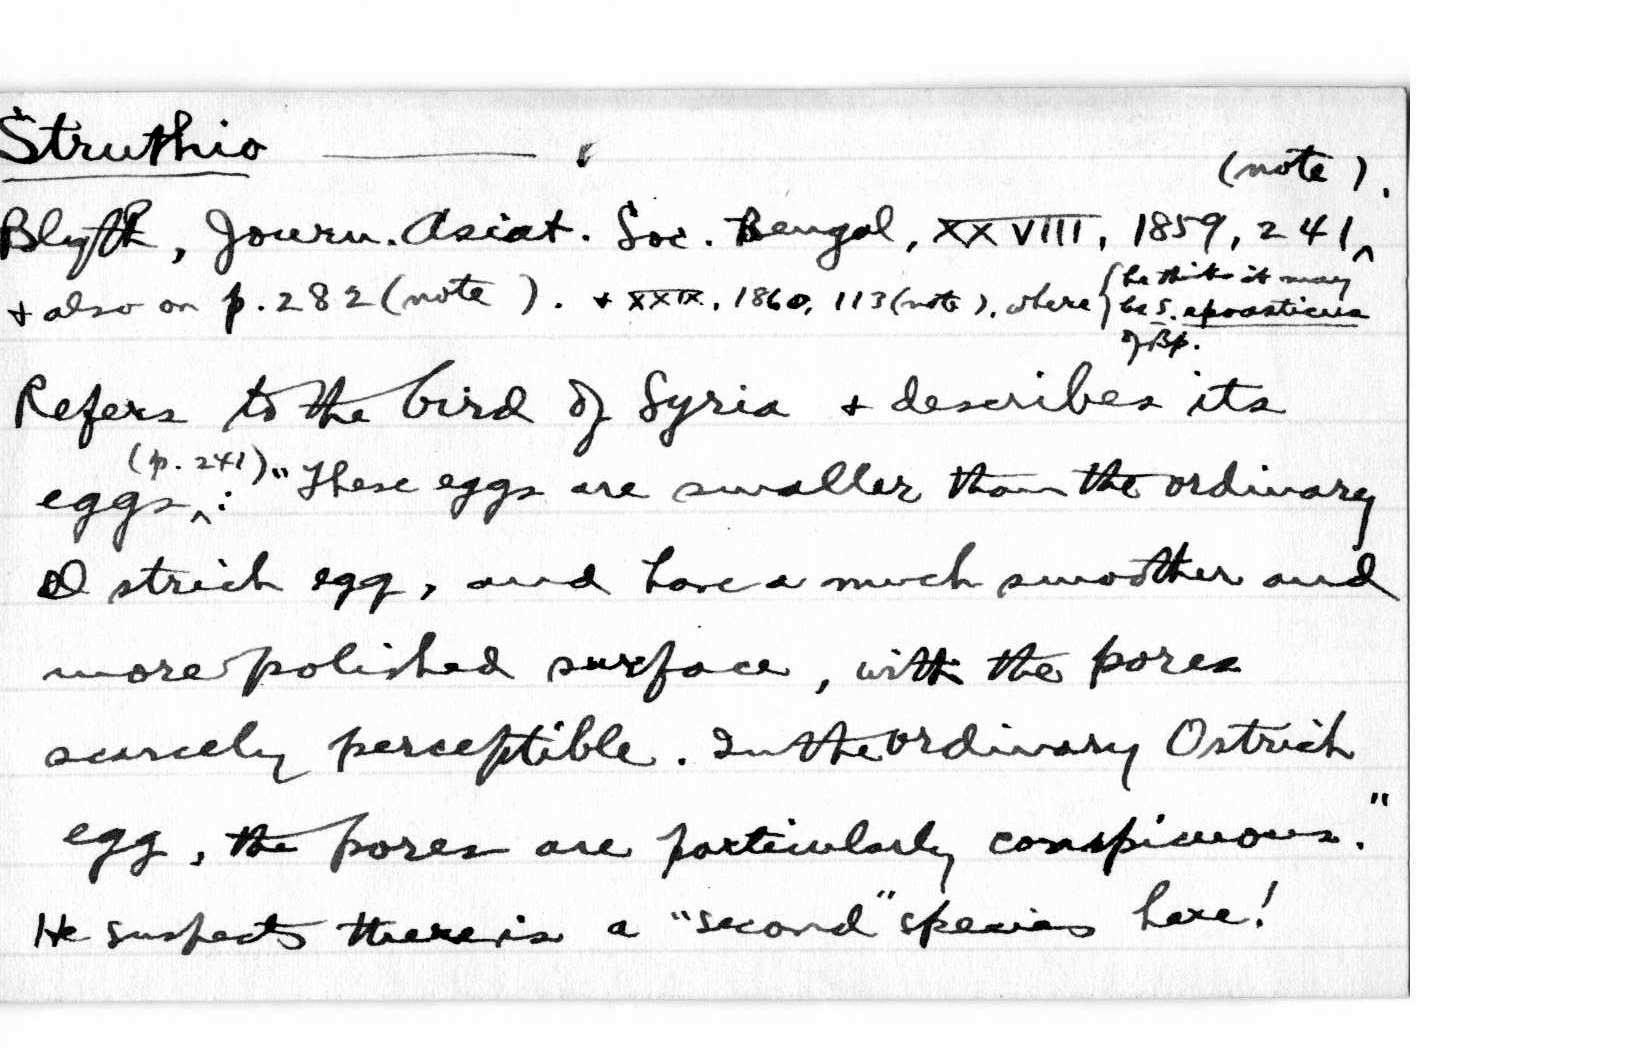 Struthio ———
(note).
Blyth, Journ. Asiat. Soc. Bengal, XXVIII, 1859, 241^
+ also on p. 282 (note). + XXIX, 1860, 113 (note), where { he thinks it may
be S. epoasticus
of Bp.
Refers to the bird of Syria + describes its
(p. 241)
eggs^: "These eggs are smaller than the ordinary
Ostrich egg, and have a much smoother and
more polished surface, with the pores
scarcely perceptible. In the ordinary Ostrich
egg, the pores are particularly conspicuous."
He suspects there is a "second" species here!